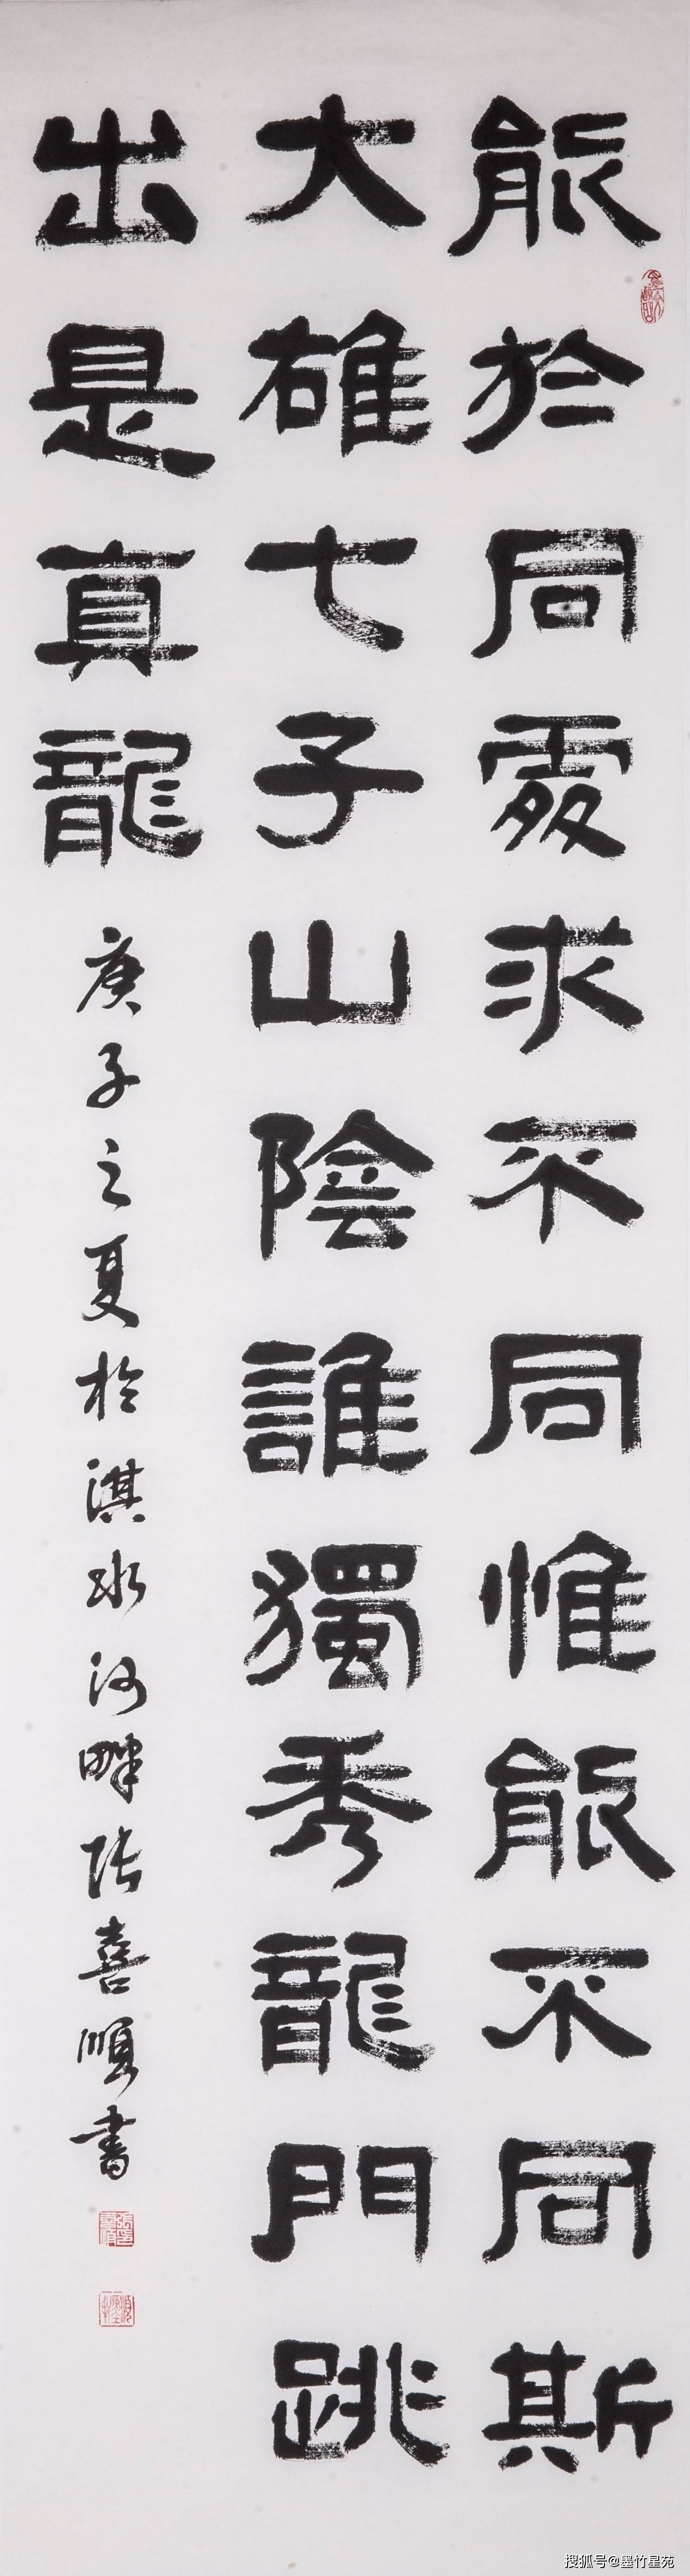 能於同處求不同惟能不同斯
大雄七子山陰誰獨秀龍門跳
出是真龍
庚子之夏於淇水河畔張喜順書
搜狐号@墨竹星苑